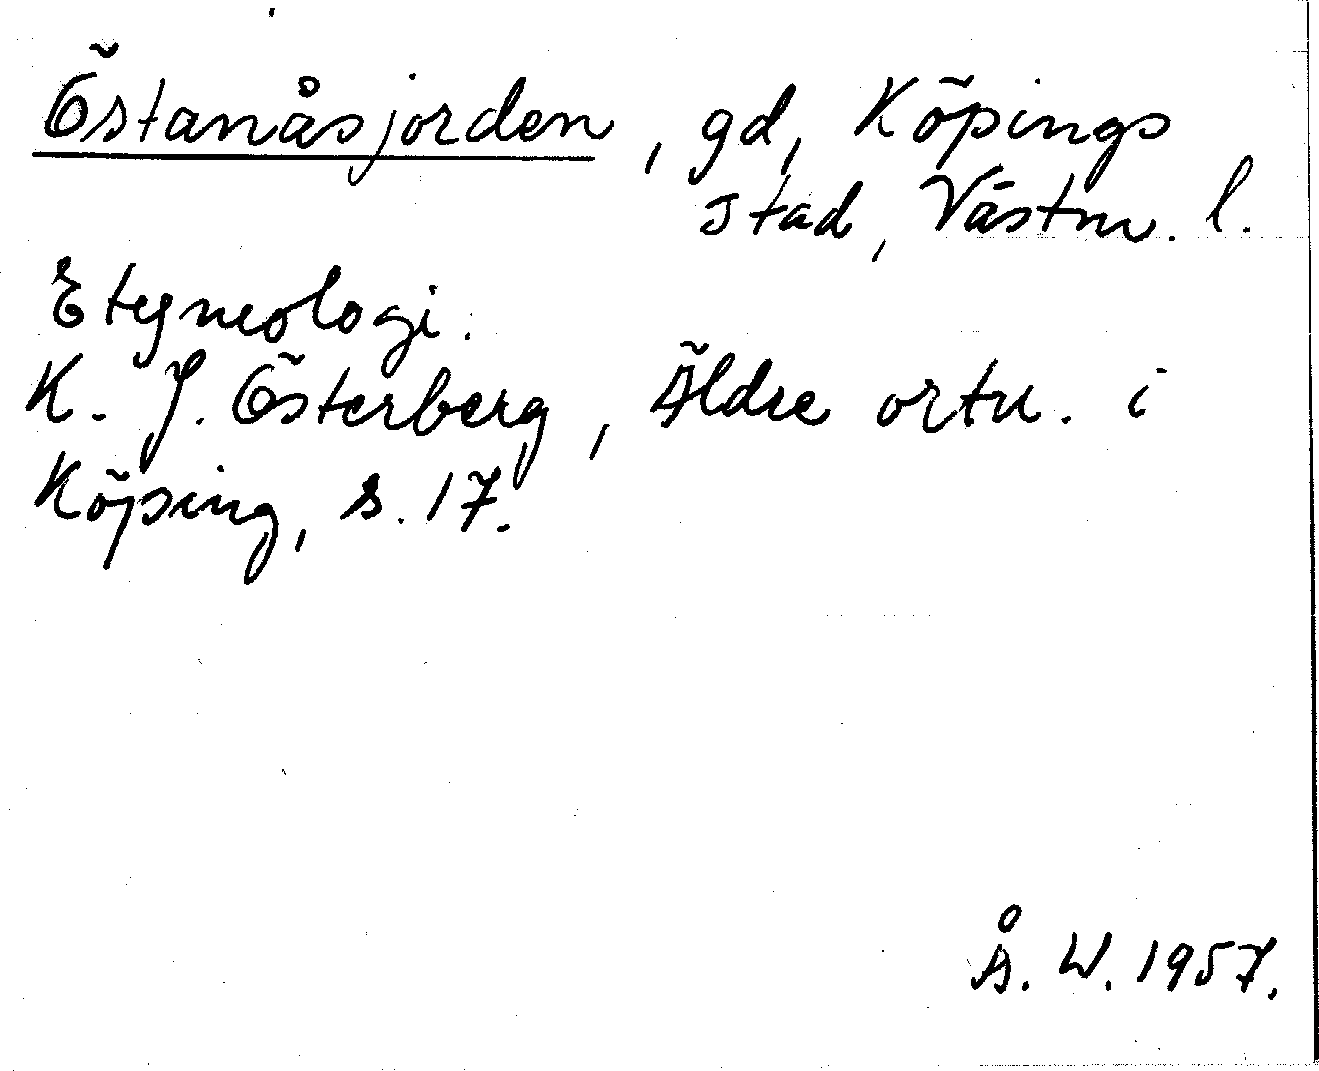 Östanåsjorden, gd, Köpings
stad, Västm. l.
Etymologi.
K. J. Österberg, Äldre ortn. i
Köping, s. 17.
Å. W. 1957.